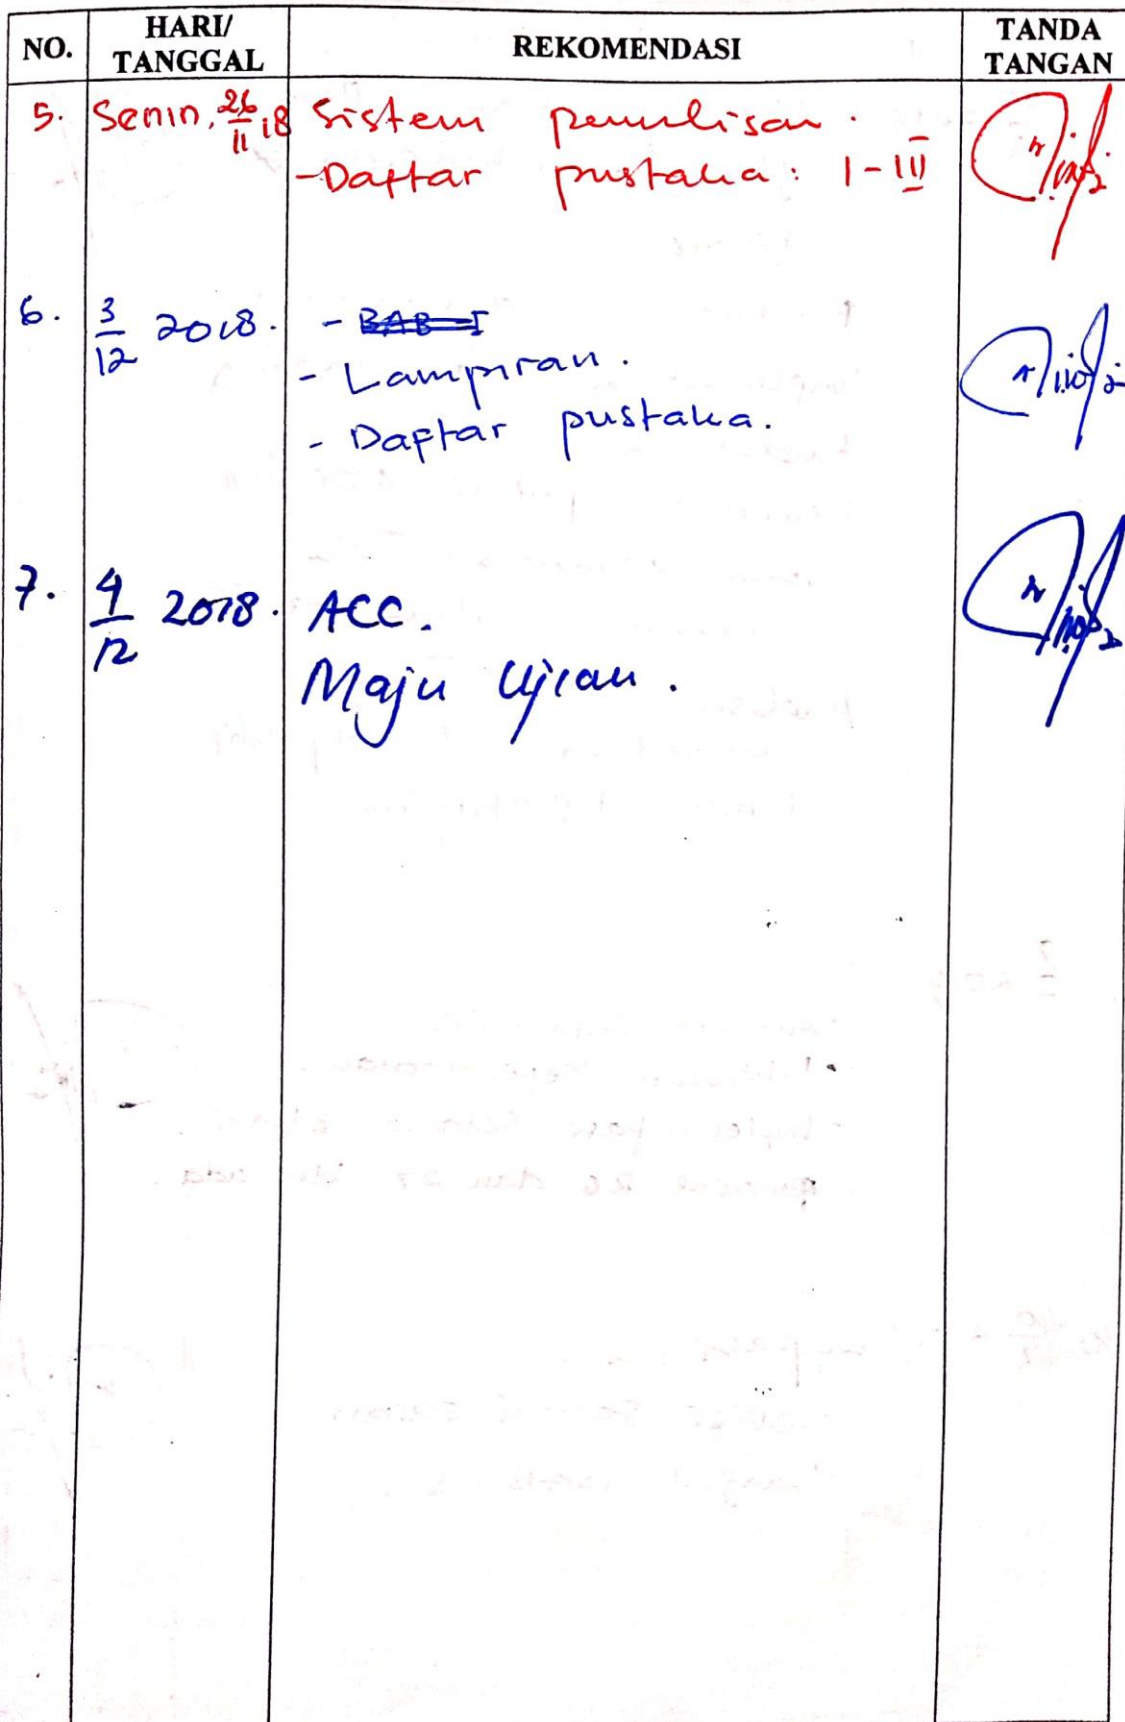 NO. HARI/ TANGGAL REKOMENDASI TANDA TANGAN
5. Senin, 26/11 18 Sistem penulisan.
- Daftar pustaka: I - III
6. 3/12 2018. - BAB I
- Lampiran.
- Daftar pustaka.
7. 4/12 2018. ACC.
Maju Ujian.